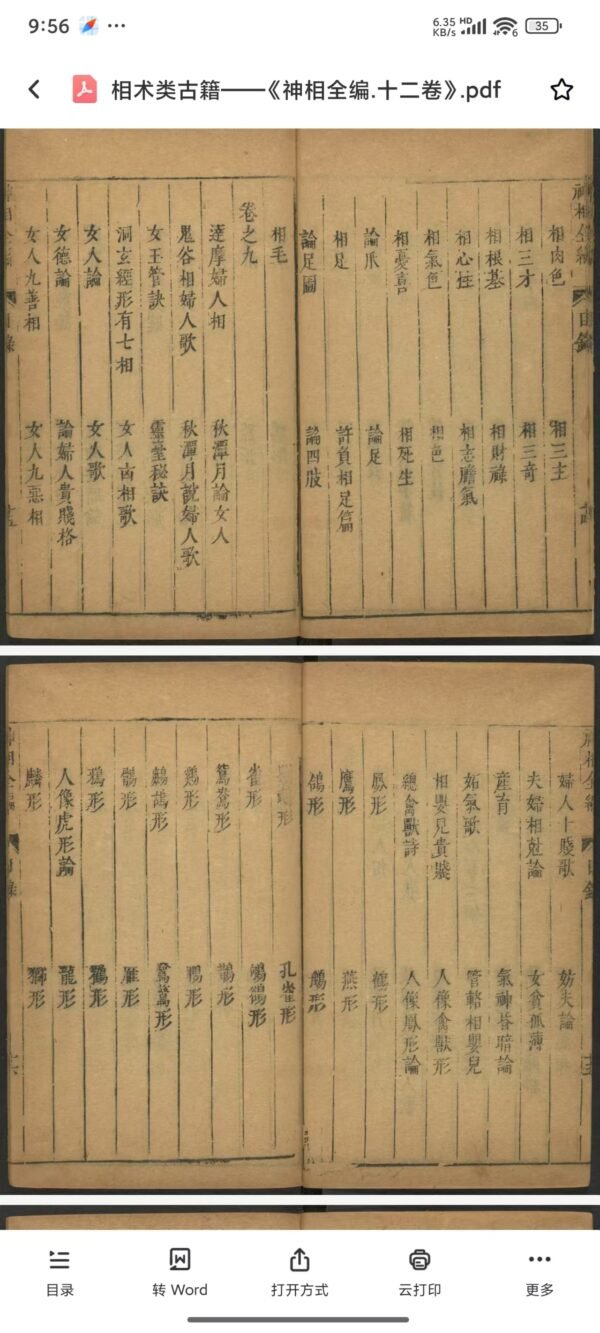 9:56
6.35
KB/s
HD
6
35
相术类古籍——《神相全编.十二卷》.pdf
神相全編
目錄
相肉色 相三主
相三才 相三奇
相根基 相財祿
相心性 相志膽氣
相氣色 相色
相憂喜 相死生
論爪 論足
相足 許負相足篇
論足圖 論四肢
相毛
卷之九
達摩婦人相 秋潭月論女人
鬼谷相婦人歌 秋潭月說婦人歌
女玉管訣 靈臺秘訣
洞玄經形有七相 女人凶相歌
女人論 女人歌
女德論 論婦人貴賤格
女人九善相 女人九惡相
目錄
婦人十賤歌 妨夫論
夫婦相尅論 女命孤薄
產育 氣神昏暗論
妬氣歌 管輅相嬰兒
相嬰兒貴賤 人像禽獸形
總禽獸詩 人像鳳形論
鳳形 鶴形
鷹形 燕形
鴿形
形 孔雀形
雀形 形
鴛鴦形 鵲形
形 鴨形
鷓鴣形 形
形 雁形
形 鸛形
人像虎形論 龍形
麟形 獅形
目录
转 Word
打开方式
云打印
更多